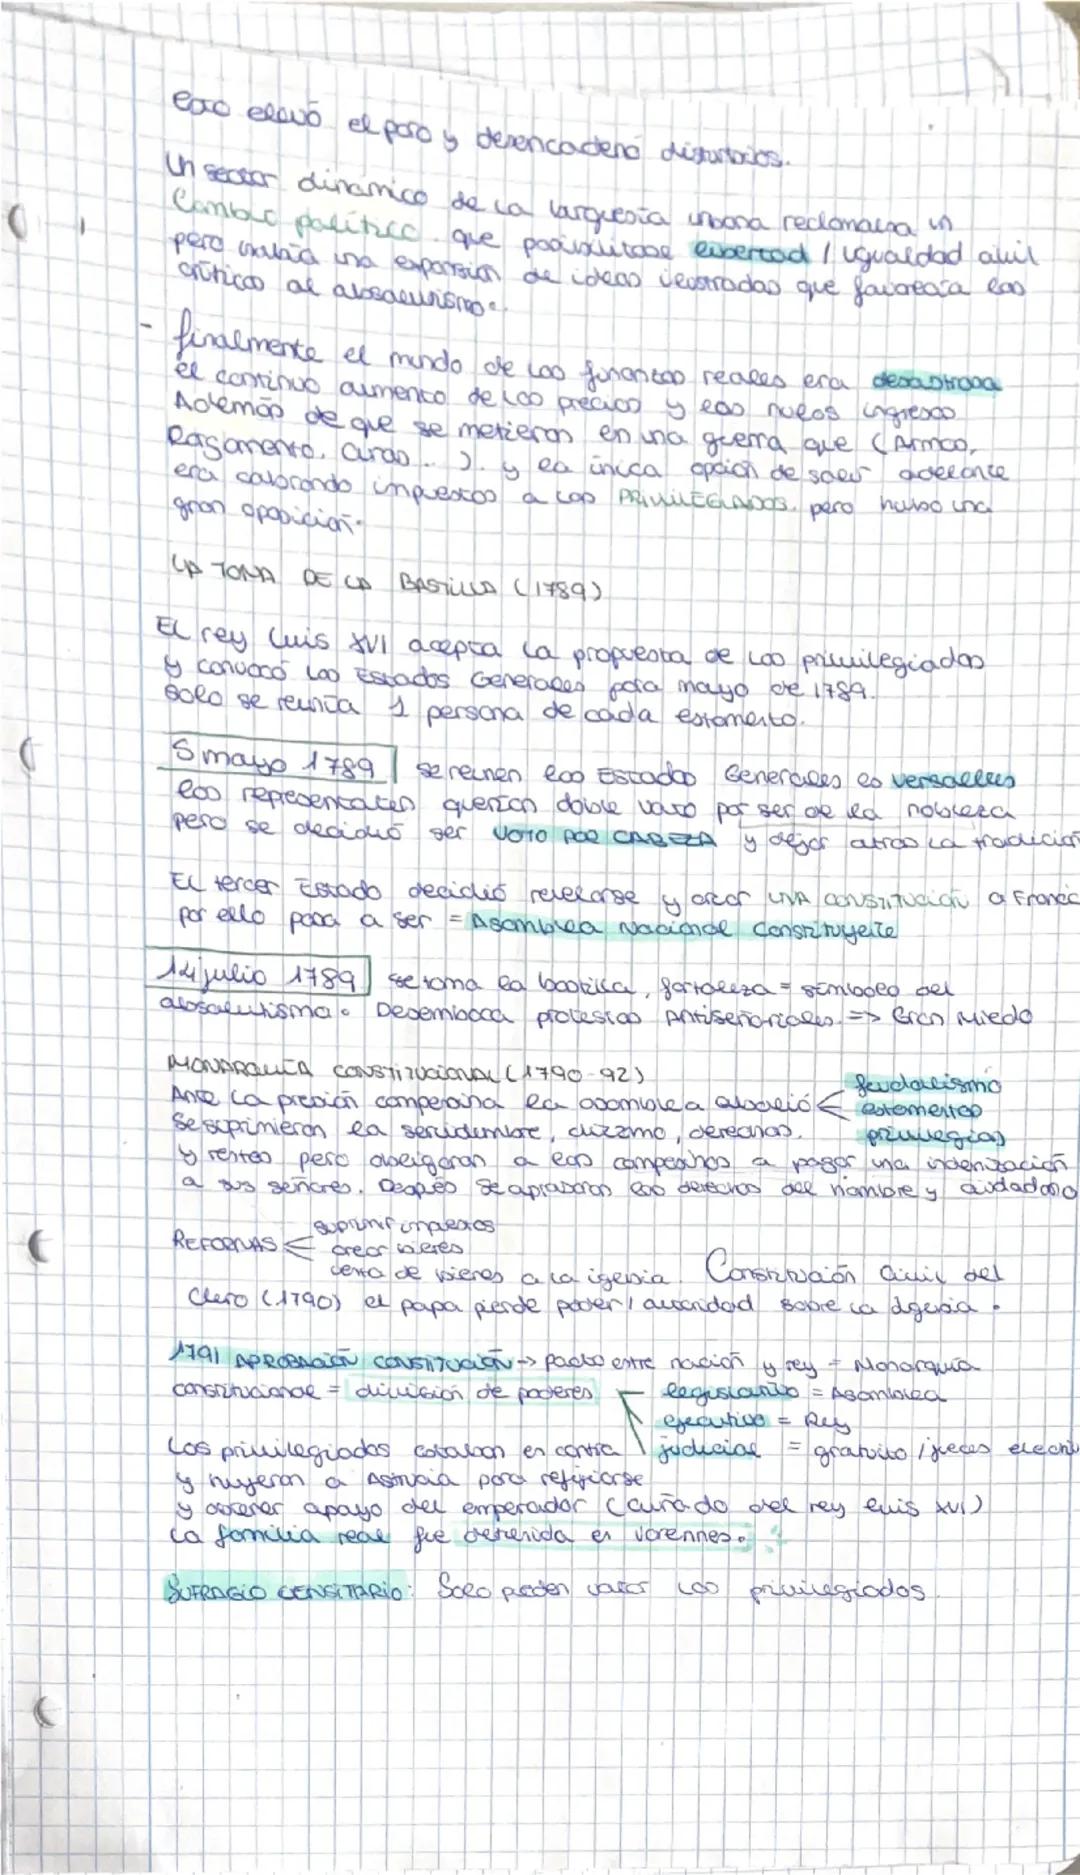 Esto elevó el paro y desencadenó disturbios.
Un sector dinámico de la burguesía urbana reclamaba un
Cambio político que posibilitase libertad / igualdad civil
pero había una expansión de ideas ilustradas que favorecía las
críticas al absolutismo.
- finalmente el mundo de las finanzas reales era desastrosa
el continuo aumento de los precios y los nulos ingresos
Además de que se metieron en una guerra que (Armas,
Rorgamento, curas...). y la única opción de salir adelante
era cobrando impuestos a los PRIVILEGIADOS. pero hubo una
gran oposición.
LA TOMA DE LA BASTILLA (1789)
El rey Luis XVI acepta la propuesta de los privilegiados
y convocó los Estados Generales para mayo de 1789.
Solo se reunía 1 persona de cada estamento.
5 mayo 1789 se reunen los Estados Generales es Versalles
los representates querían doble voto por ser de la nobleza
pero se decidió ser VOTO POR CABEZA y dejar atras la tradición
El tercer Estado decidió revelarse y crear UNA CONSTITUCIÓN a Francia
por ello pasa a ser = Asamblea Nacional Constituyente
14 julio 1789 se toma la bastilla, fortaleza = simbolo del
absolutismo. Desemboca protestas Antiseñoriales => Gran Miedo
MONARQUÍA CONSTITUCIONAL (1790-92)
Ante la presión campesina la asamblea abolió < feudalismo
estamentos
privilegios
Se suprimieron la servidumbre, diezmo, derechos.
y rentas pero obligaron a los campesinos a pagar una indenización
a sus señores. Después se aprobaron los derechos del hombre y ciudadano
REFORMAS < suprimir impuestos
crear bienes
venta de bienes a la iglesia. Constitución Civil del
Clero (1790) el papa pierde poder / autoridad sobre la iglesia.
1791 APROBACIÓN CONSTITUCIÓN -> pacto entre nación y rey = Monarquía
constitucional = división de poderes
legislativo = Asamblea
ejecutivo = Rey
judicial = gratuito / jueces electi
Los privilegiados estaban en contra
y huyeron a Austria para refugiarse
y obtener apoyo del emperador (cuñado del rey Luis XVI)
La familia real fue detenida en Varennes.
SUFRAGIO CENSITARIO: Solo pueden votar los privilegiados.